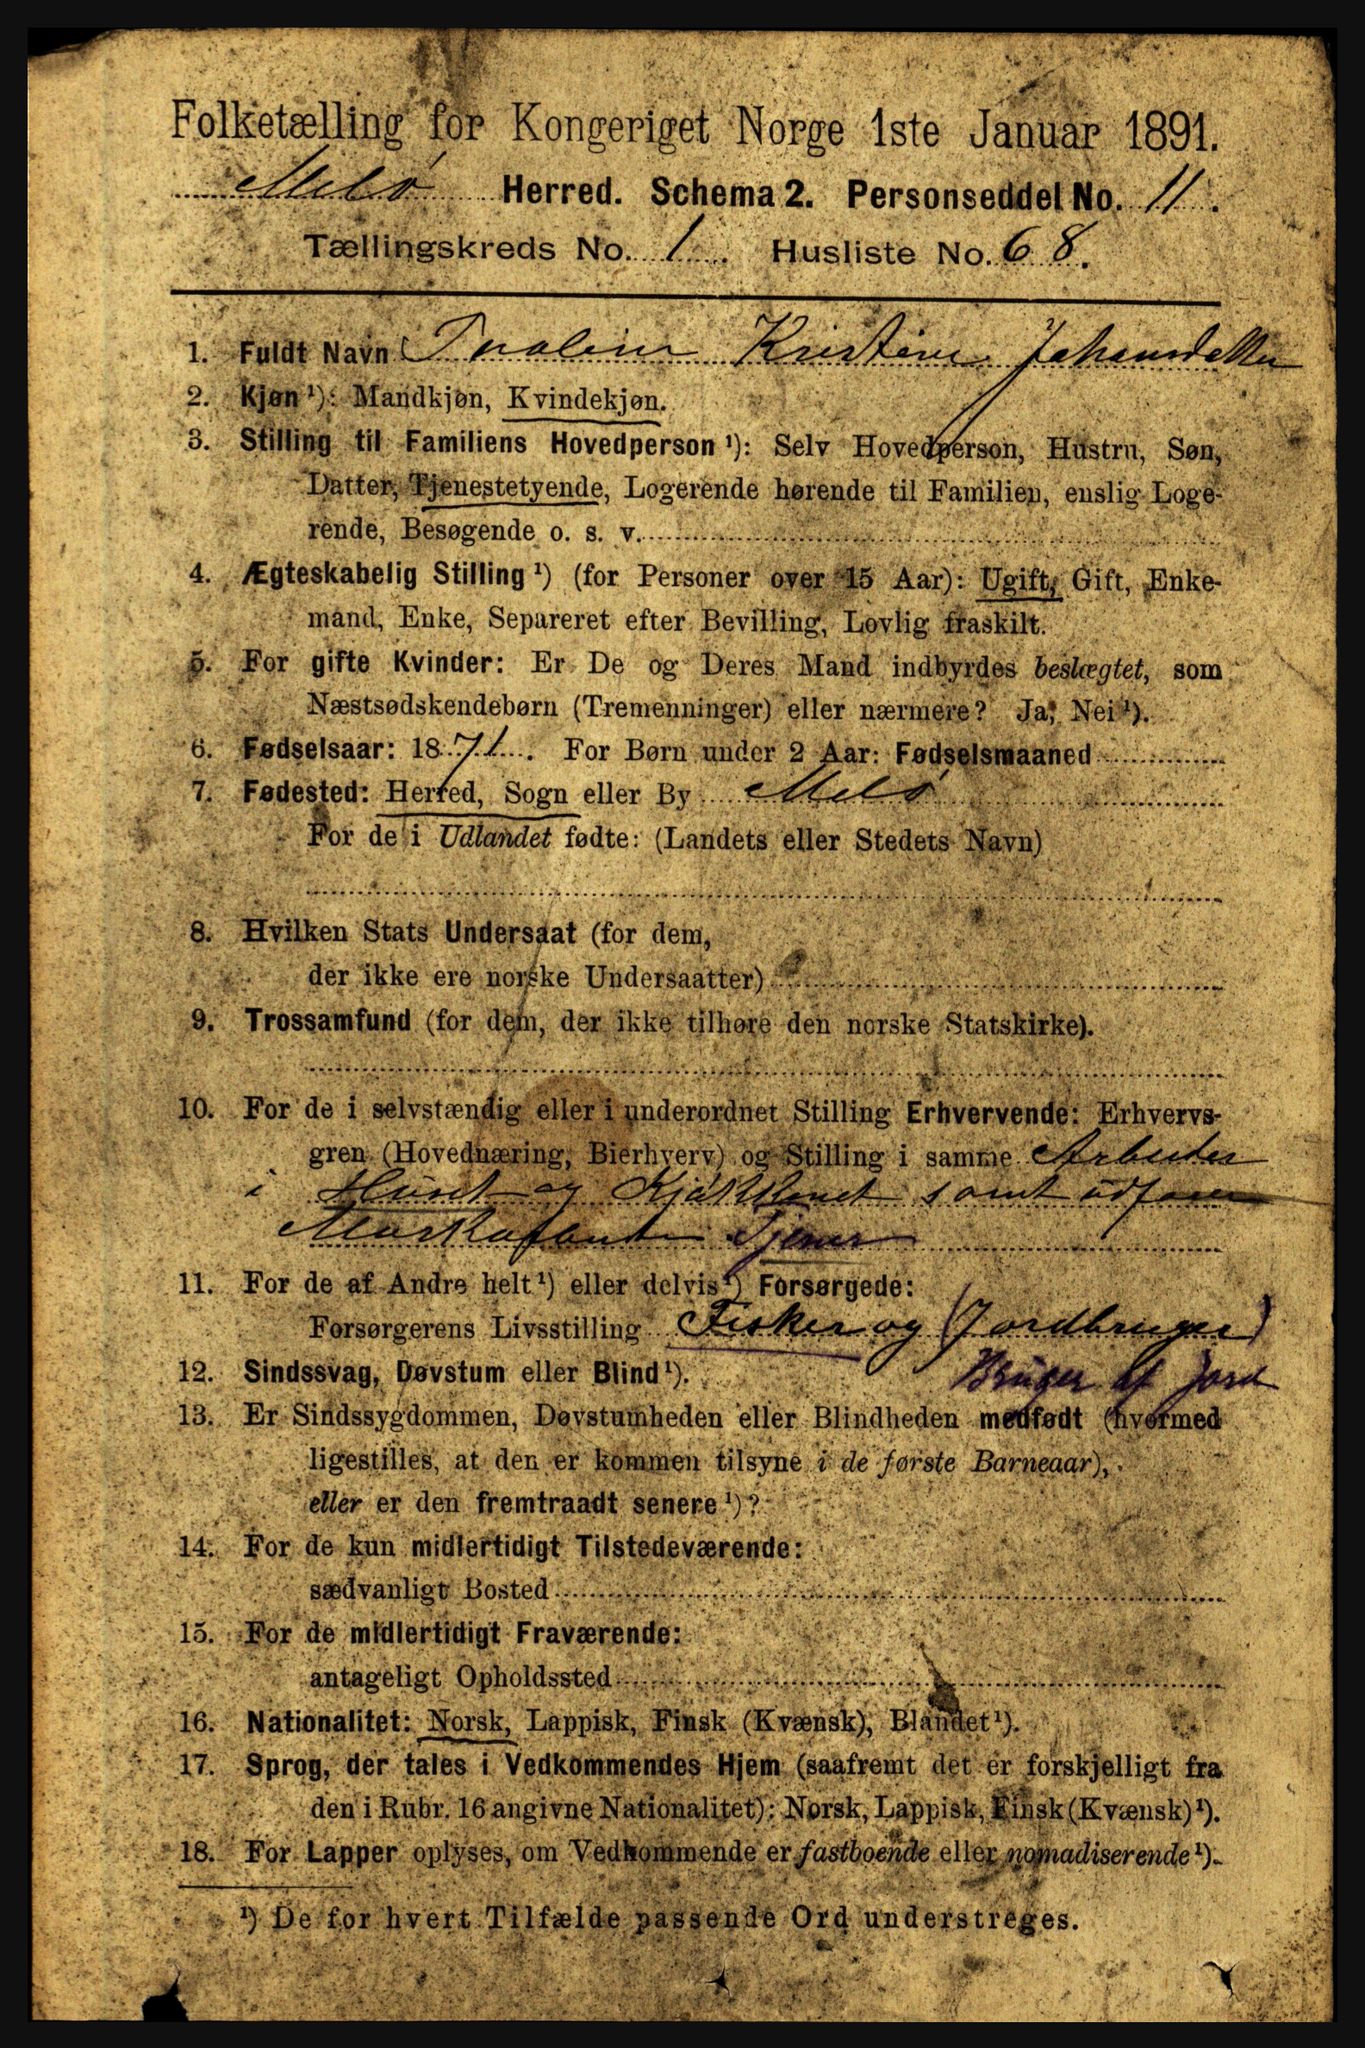 Folketælling for Kongeriget Norge 1ste Januar 1891.
Melø Herred. Schema 2. Personseddel No. 11.
Tællingskreds No. 1. Husliste No. 68.
1. Fuldt Navn Paaline Kristine Johansdatter
2. Kjøn ¹): Mandkjøn, Kvindekjøn.
3. Stilling til Familiens Hovedperson ¹): Selv Hovedperson, Hustru, Søn,
Datter, Tjenestetyende, Logerende hørende til Familien, enslig Loge-
rende, Besøgende o. s. v.
4. Ægteskabelig Stilling ¹) (for Personer over 15 Aar): Ugift, Gift, Enke-
mand, Enke, Separeret efter Bevilling, Lovlig fraskilt.
5. For gifte Kvinder: Er De og Deres Mand indbyrdes beslægtet, som
Næstsødskendebørn (Tremenninger) eller nærmere? Ja, Nei ¹).
6. Fødselsaar: 1871. For Børn under 2 Aar: Fødselsmaaned
7. Fødested: Herred, Sogn eller By Melø
For de i Udlandet fødte: (Landets eller Stedets Navn)
8. Hvilken Stats Undersaat (for dem,
der ikke ere norske Undersaatter)
9. Trossamfund (for dem, der ikke tilhøre den norske Statskirke).
10. For de i selvstændig eller i underordnet Stilling Erhvervende: Erhvervs-
gren (Hovednæring, Bierhverv) og Stilling i samme Arbeider
i Huset og Kjøkkenet samt udfører
Tjener
11. For de af Andre helt ¹) eller delvis ¹) Forsørgede:
Forsørgerens Livsstilling Fisker og (Jordbruger)
12. Sindssvag, Døvstum eller Blind ¹). Bruger af Jord
13. Er Sindssygdommen, Døvstumheden eller Blindheden medfødt (hvormed
ligestilles, at den er kommen tilsyne i de første Barneaar),
eller er den fremtraadt senere ¹)?
14. For de kun midlertidigt Tilstedeværende:
sædvanligt Bosted
15. For de midlertidigt Fraværende:
antageligt Opholdssted
16. Nationalitet: Norsk, Lappisk, Finsk (Kvænsk), Blandet ¹).
17. Sprog, der tales i Vedkommendes Hjem (saafremt det er forskjelligt fra
den i Rubr. 16 angivne Nationalitet): Norsk, Lappisk, Finsk (Kvænsk) ¹).
18. For Lapper oplyses, om Vedkommende er fastboende eller nomadiserende ¹).
¹) De for hvert Tilfælde passende Ord understreges.